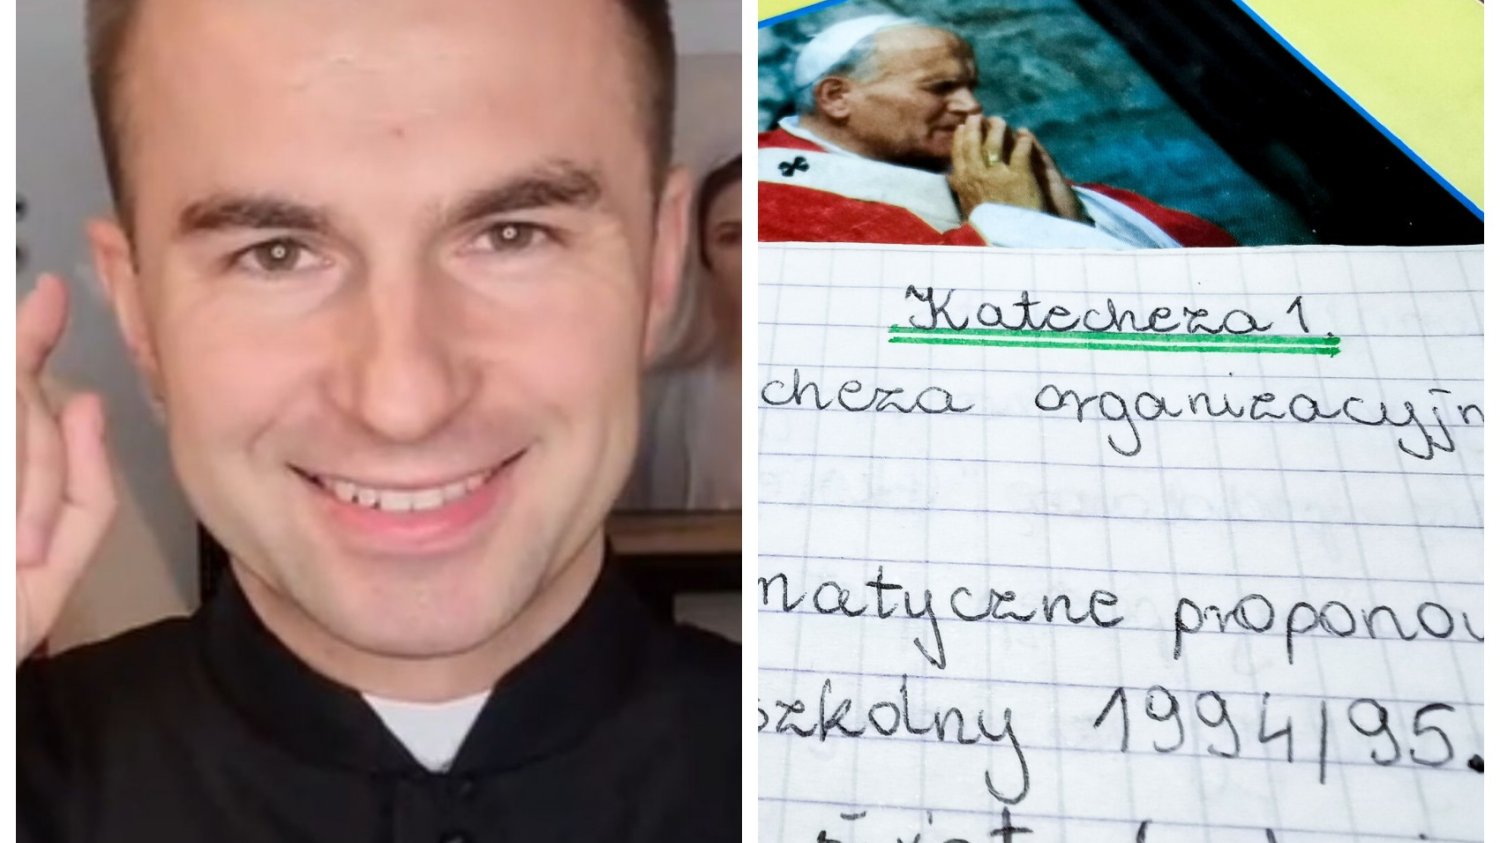 Katecheza 1.
cheza organizacyjn
matyczne propono
szkolny 1994/95.